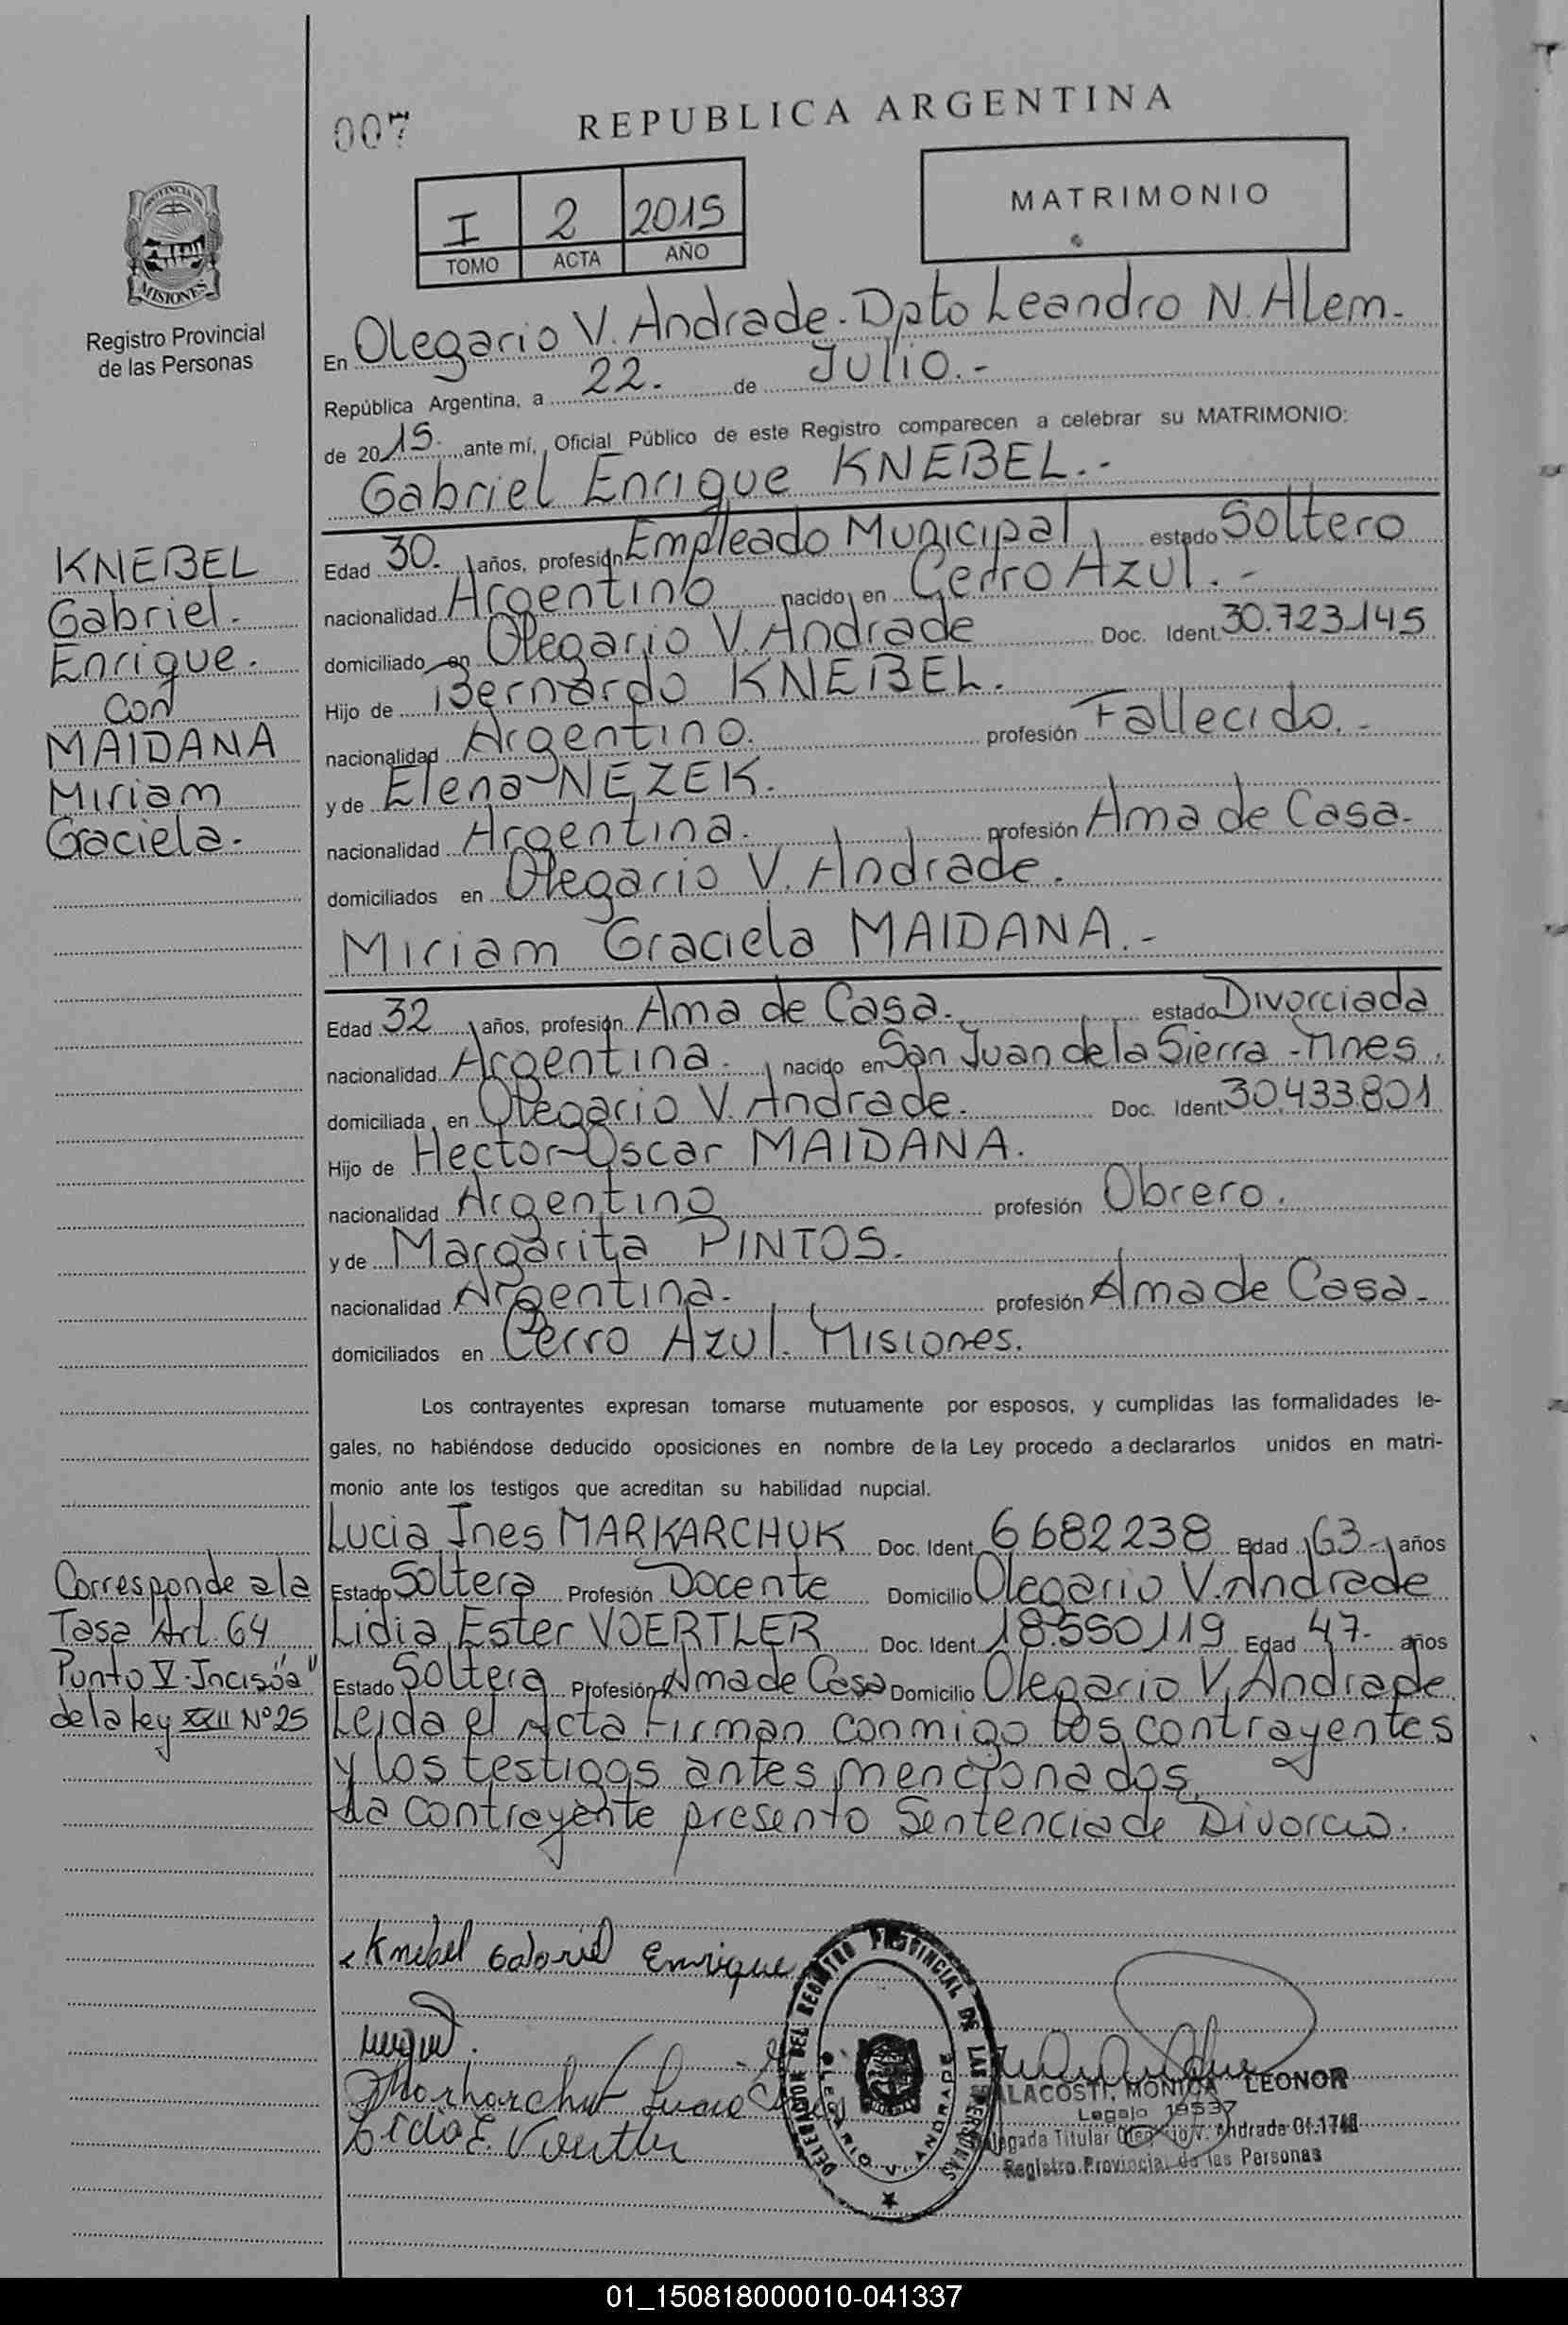 007
REPUBLICA ARGENTINA
I 2 2015
TOMO ACTA AÑO
MATRIMONIO
PROVINCIA DE
MISIONES
Registro Provincial
de las Personas
En Olegario V. Andrade. Dpto Leandro N. Alem.-
República Argentina, a 22. de Julio.-
de 2015. ante mí, Oficial Público de este Registro comparecen a celebrar su MATRIMONIO:
Gabriel Enrique KNEBEL.-
KNEBEL
Gabriel.
Enrique.
con
MAIDANA
Miriam
Graciela.
Edad 30. años, profesión Empleado Municipal estado Soltero
nacionalidad Argentino nacido en Cerro Azul.-
domiciliado en Olegario V. Andrade Doc. Ident. 30.723.145
Hijo de Bernardo KNEBEL.
nacionalidad Argentino. profesión Fallecido.-
y de Elena NEZEK.
nacionalidad Argentina. profesión Ama de Casa.
domiciliados en Olegario V. Andrade.
Miriam Graciela MAIDANA.-
Edad 32 años, profesión Ama de Casa. estado Divorciada
nacionalidad Argentina. nacido en San Juan de la Sierra - Mnes.
domiciliada en Olegario V. Andrade. Doc. Ident. 30.433.801
Hijo de Hector Oscar MAIDANA.
nacionalidad Argentino profesión Obrero.
y de Margarita PINTOS.
nacionalidad Argentina. profesión Ama de Casa.
domiciliados en Cerro Azul. Misiones.
Los contrayentes expresan tomarse mutuamente por esposos, y cumplidas las formalidades le-
gales, no habiéndose deducido oposiciones en nombre de la Ley procedo a declararlos unidos en matri-
monio ante los testigos que acreditan su habilidad nupcial.
Lucia Ines MARKARCHUK Doc. Ident. 6682238 Edad 63 años
Estado Soltera Profesión Docente Domicilio Olegario V. Andrade
Lidia Ester VOERTLER Doc. Ident. 18.550.119 Edad 47 años
Estado Soltera Profesión Ama de Casa Domicilio Olegario V. Andrade
Leida el Acta Firman conmigo los contrayentes
y los testigos antes mencionados.
La contrayente presento Sentencia de Divorcio.
Corresponde a la
Tasa Art. 64
Punto V. Inciso "a"
de la Ley XXII Nº 25
Knebel Gabriel Enrique
Markarchuk Lucia
Lidia E. Voertler
DELEGADOR DEL REGISTRO PROVINCIAL DE LAS PERSONAS
OLEGARIO V. ANDRADE
MONICA LEONOR
Legajo 19537
Titular Olegario V. Andrade Of. 1748
Registro Provincial de las Personas
01_150818000010-041337